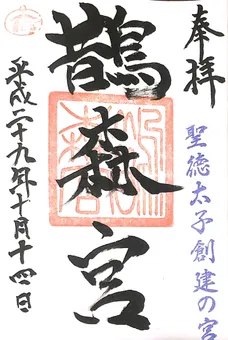 奉拝
聖徳太子創建の宮
鵲森宮
平成二十九年十月十四日